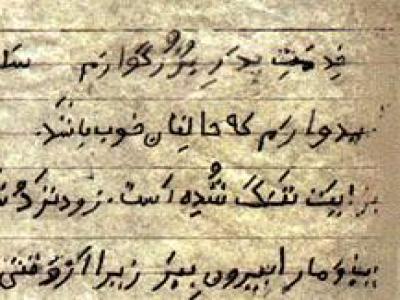 خِدمَتِ پِدَرِ بُزُرگوارَم سَلا
میدوارَم که حالِتان خوب باشَد.
برایَت تَنگ شُده اَست. زود نَزدِ
بیا و ما را بیرون بِبَر زیرا اَز وَقتی